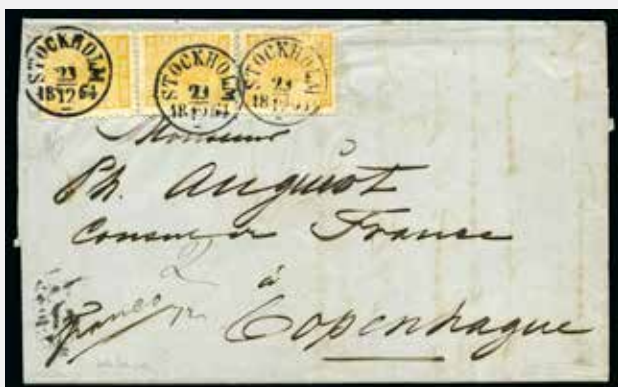 STOCKHOLM 23 12 1864
STOCKHOLM 23 12 1864
STOCKHOLM 23 12 1864
Monsieur
Ph. Auguiot
Consul de France
à
franco Copenhague